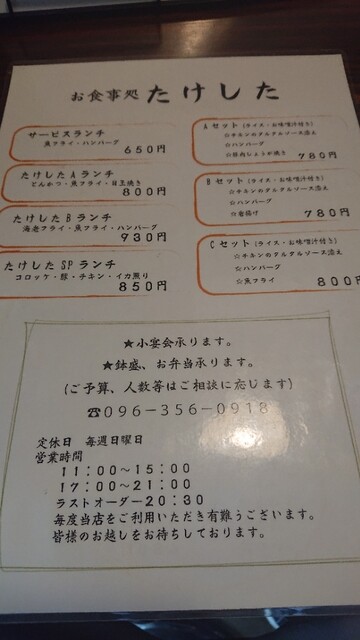 お食事処 たけした
サービスランチ
魚フライ・ハンバーグ
650円
たけした A ランチ
とんかつ・魚フライ・目玉焼き
800円
たけした B ランチ
海老フライ・魚フライ・ハンバーグ
930円
たけした SP ランチ
コロッケ・豚・チキン・イカ照り
850円
A セット (ライス・お味噌汁付き)
☆チキンのタルタルソース添え
☆ハンバーグ
☆豚肉しょうが焼き
780円
B セット (ライス・お味噌汁付き)
☆チキンのタルタルソース添え
☆ハンバーグ
☆唐揚げ
780円
C セット (ライス・お味噌汁付き)
☆チキンのタルタルソース添え
☆ハンバーグ
☆魚フライ
800円
★小宴会承ります。
★鉢盛、お弁当承ります。
(ご予算、人数等はご相談に応じます)
☎096-356-0918
定休日 毎週日曜日
営業時間
11:00～15:00
17:00～21:00
ラストオーダー20:30
毎度当店をご利用いただき有難うございます。
皆様のお越しをお待ちしております。